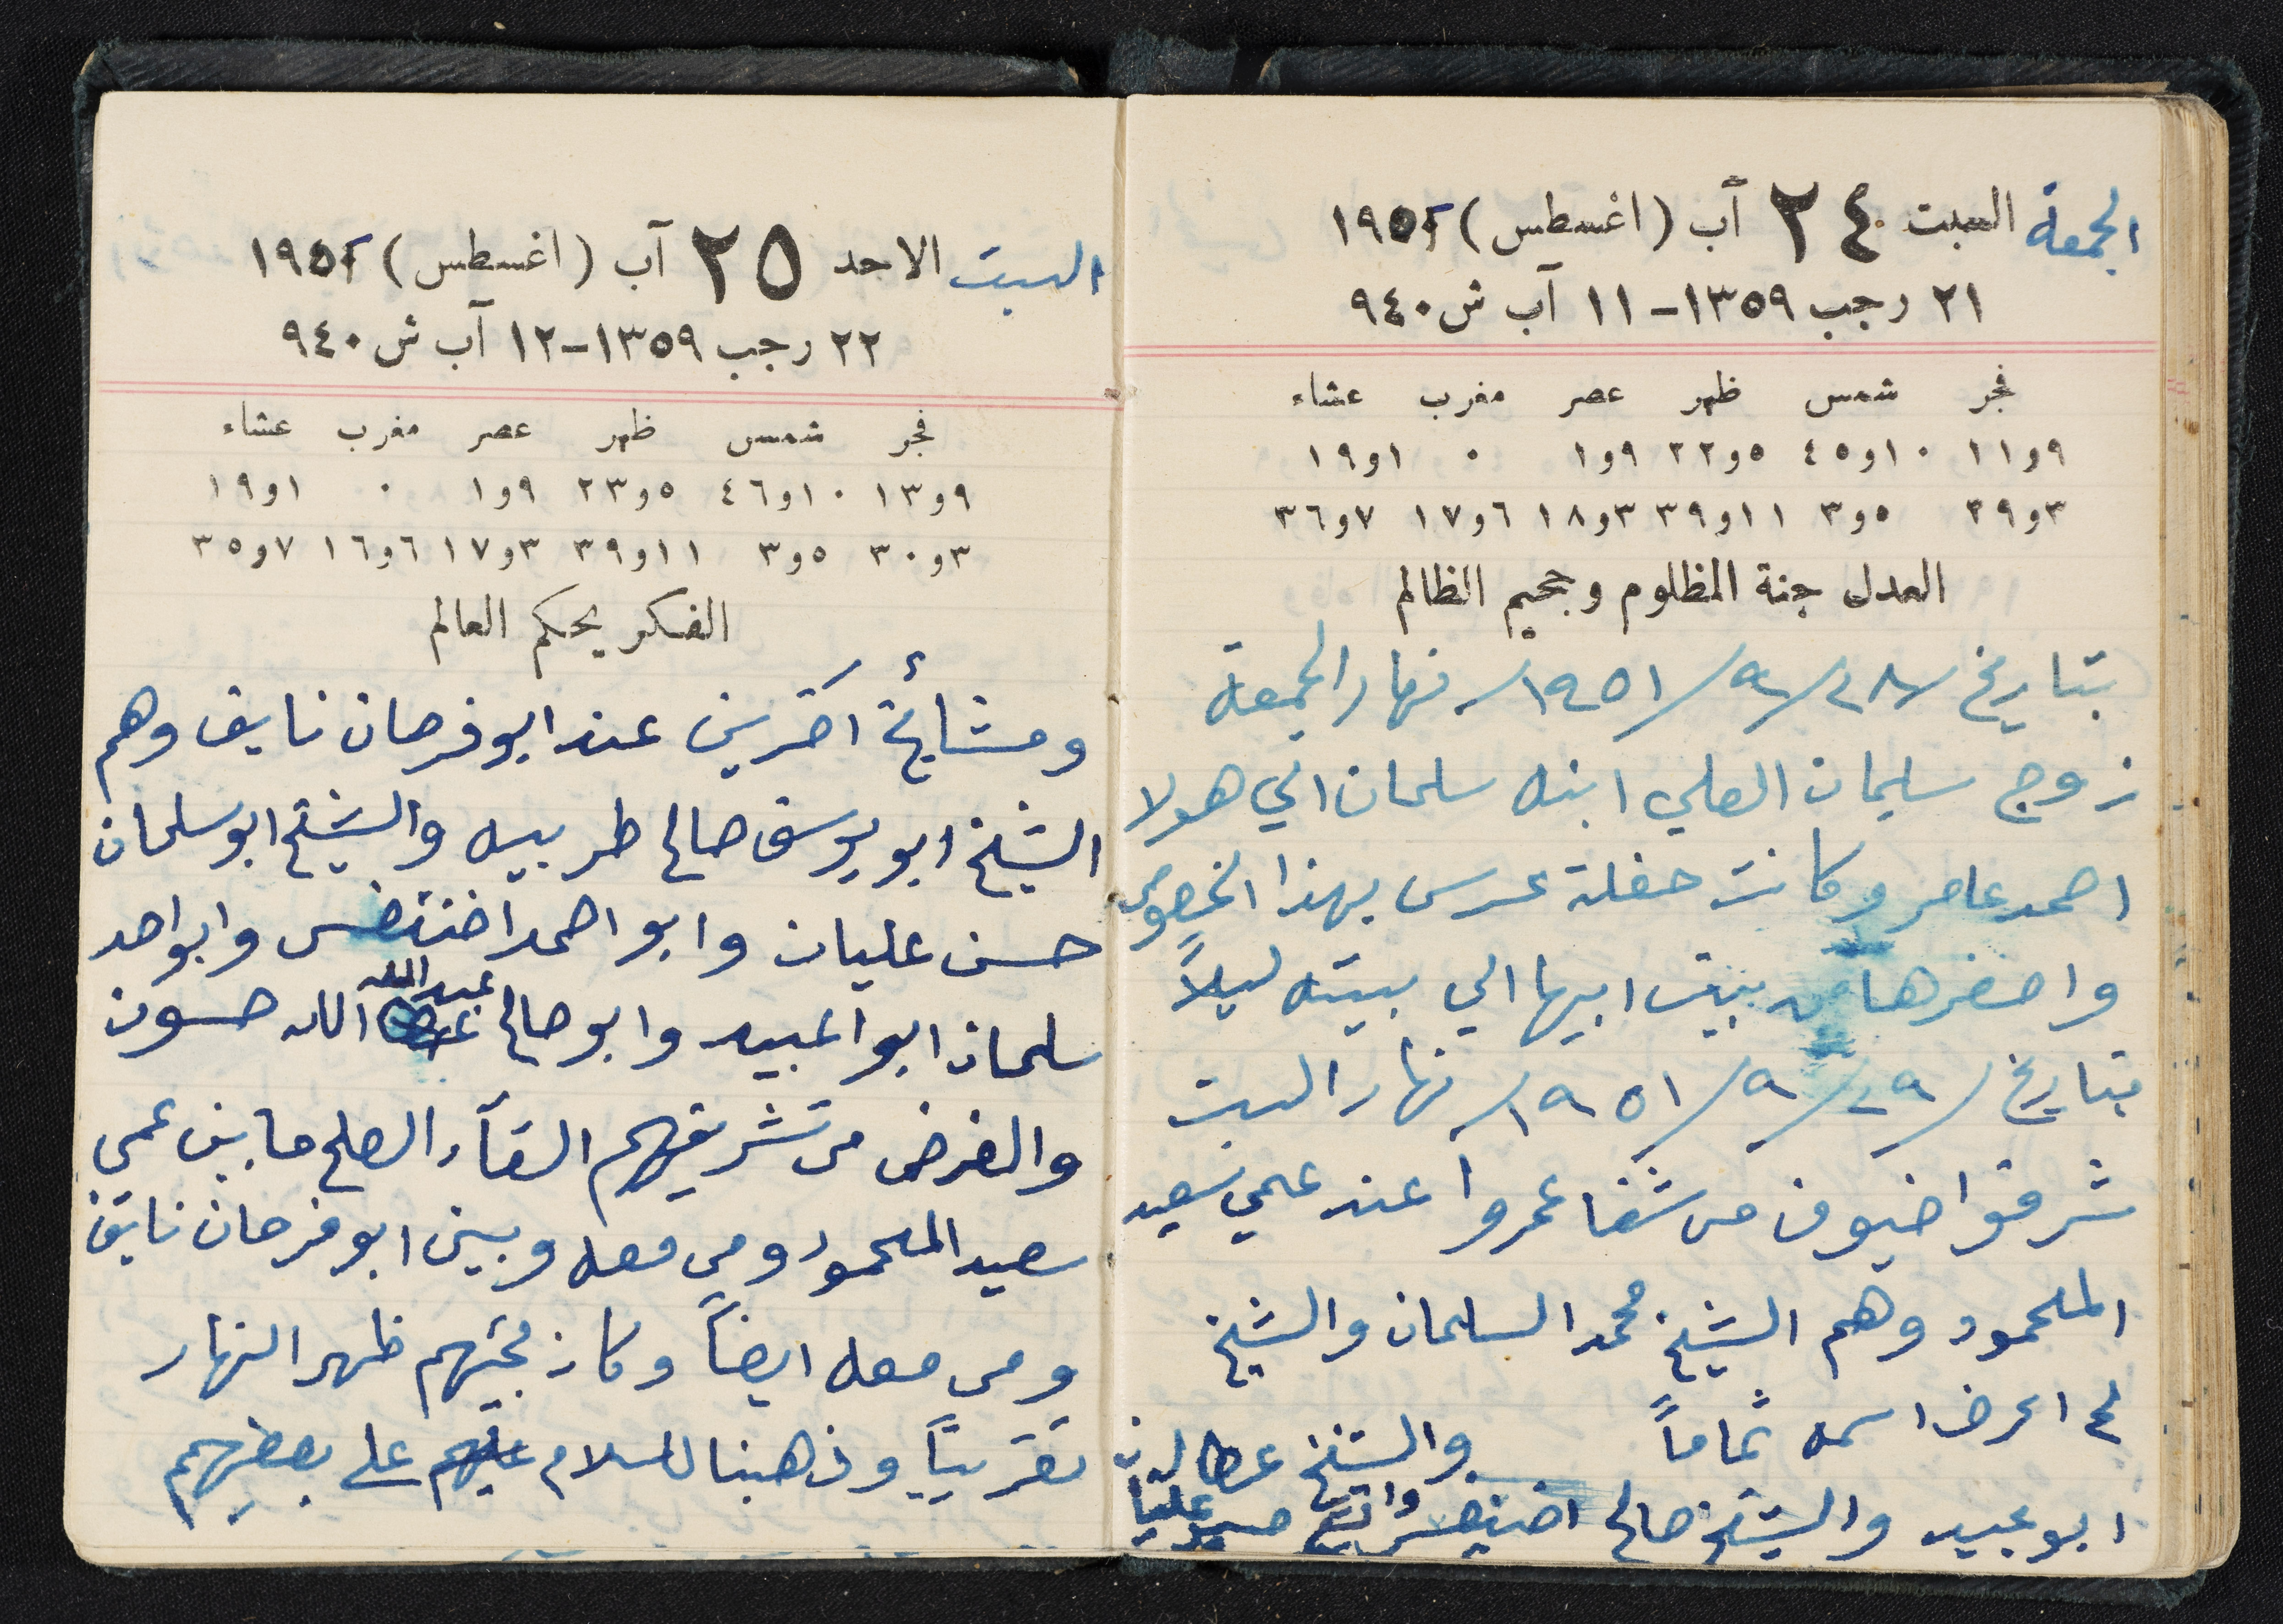 الجمعة السبت ٢٤ آب (اغسطس) ١٩٥٢
٢١ رجب ١٣٥٩-١١ آب ش ٩٤٠
فجر شمس ظهر عصر مغرب عشاء
٩و١١ ١٠و٤٥ ٥و٢٢ ٩و١ ٠ ١و١٩
٣و٢٩ ٥و٣ ١١و٣٩ ٣و١٨ ٦و١٧ ٧و٣٦
العدل جنة المظلوم وجحيم الظالم
بتاريخ ٢٨/٩/١٩٥١ نهار الجمعة
زوج سليمان العلي ابنه سلمان الي هولا
احمد عامر وكانت حفلة عرس بهذا الخصوص
واحضرها من بيت ابيها الي بيته ليلاً
بتاريخ ٢٩/٩/١٩٥١ نهار السبت
شرفوا ضيوف من شفا عمروا عند عمي سعيد
الملحمود وهم الشيخ محمد السلمان والشيخ
لم اعرف اسمه تماماً والشيخ
ابو عبيد والشيخ صالح اخنيفس والشيخ حسن عليان
السبت الاحد ٢٥ آب (اغسطس) ١٩٥٢
٢٢ رجب ١٣٥٩-١٢ آب ش ٩٤٠
فجر شمس ظهر عصر مغرب عشاء
٩و١٣ ١٠و٤٦ ٥و٢٣ ٩و١ ٠ ١و١٩
٣و٣٠ ٥و٣ ١١و٣٩ ٣و١٧ ٦و١٦ ٧و٣٥
الفكر يحكم العالم
ومشائخ اخرين عند ابو فرحان نايف وهم
الشيخ ابو يوسف صالح طربيه والشيخ ابو سلمان
حسن عليان وابو احمد اخنيفس وابو احمد
سلمان ابو اعبيد وابو صالح عبدالله الله حسون
والغرض من تشريفهم القآء الصلح ما بين عمي
سعيد الملحمود ومن معه وبين ابو فرحان نايف
ومن معه ايضاً وكان مجيئهم ظهر النهار
تقريباً وذهبنا للسلام عليهم على بعضهم